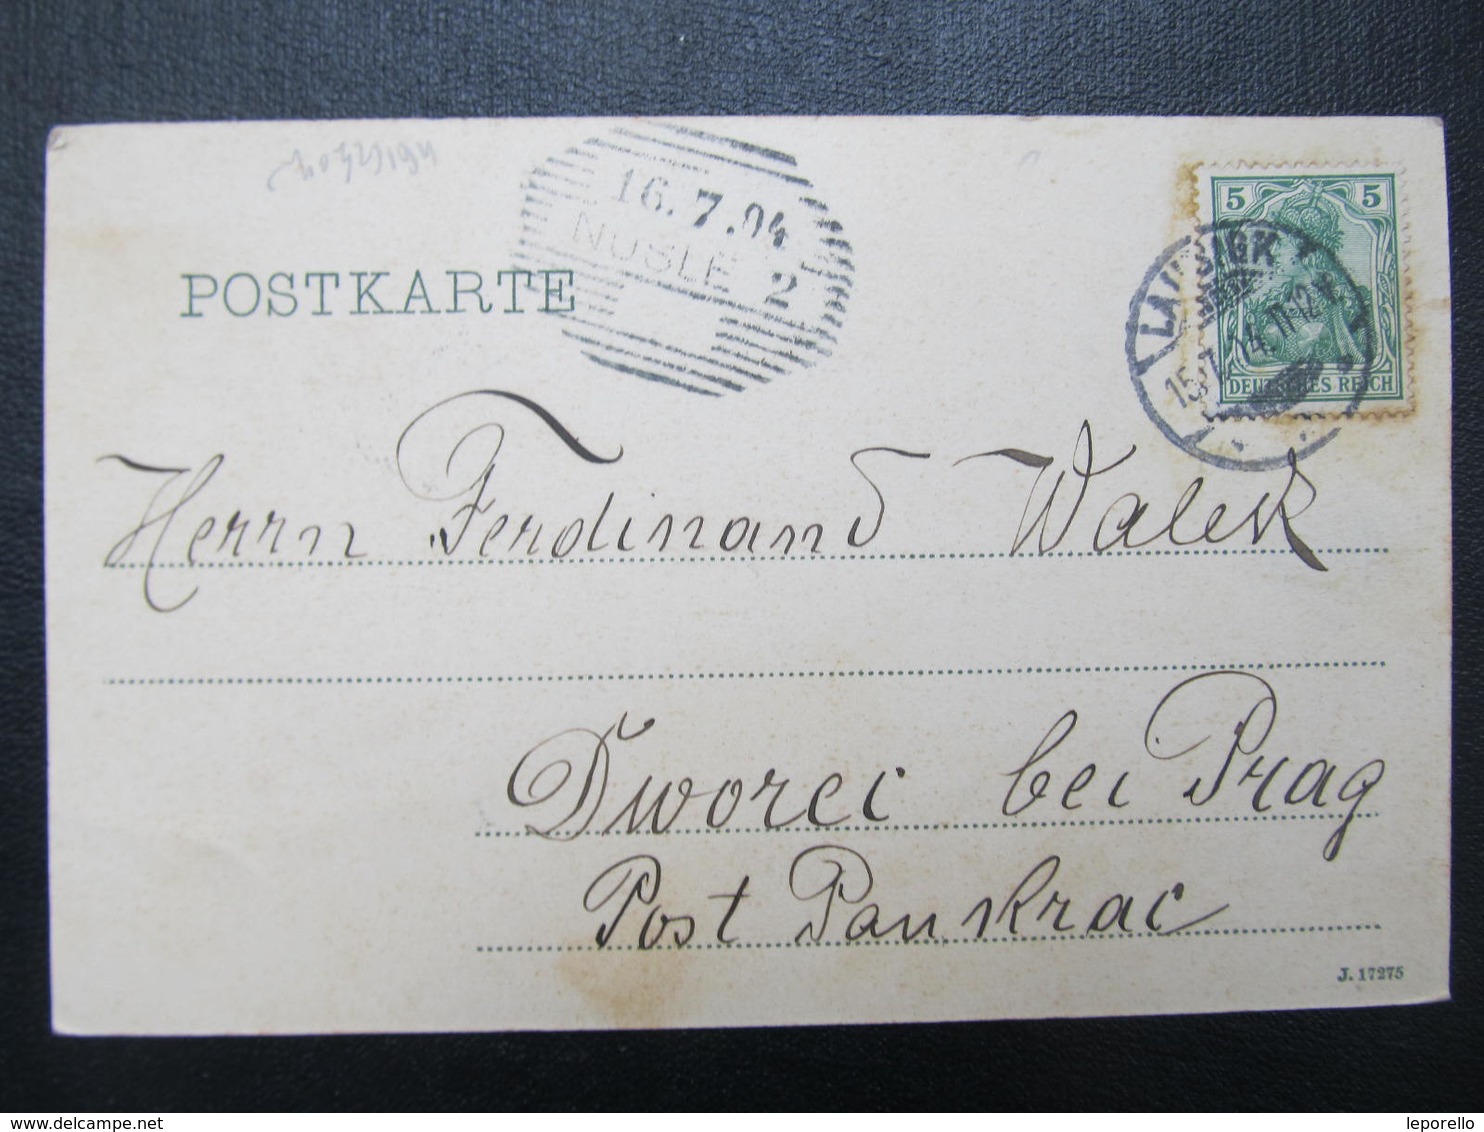 POSTKARTE
16.7.04
NUSLE 2
5 5
LAUSIGK
15.7.04. 11-12 V.
DEUTSCHES REICH
Herrn Ferdinand Walek
Dworci bei Prag
Post Pankrac
J. 17275
leporello